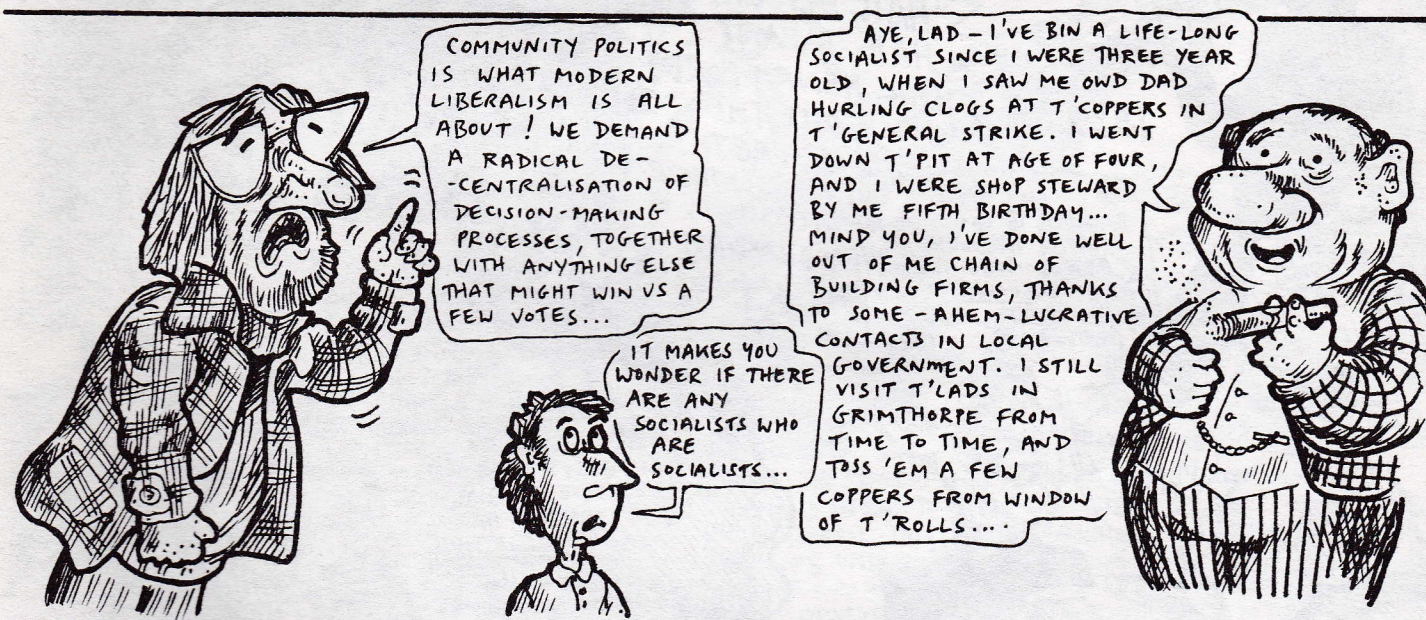 COMMUNITY POLITICS
IS WHAT MODERN
LIBERALISM IS ALL
ABOUT! WE DEMAND
A RADICAL DE-
-CENTRALISATION OF
DECISION-MAKING
PROCESSES, TOGETHER
WITH ANYTHING ELSE
THAT MIGHT WIN US A
FEW VOTES...
IT MAKES YOU
WONDER IF THERE
ARE ANY
SOCIALISTS WHO
ARE
SOCIALISTS...
AYE, LAD - I'VE BIN A LIFE-LONG
SOCIALIST SINCE I WERE THREE YEAR
OLD, WHEN I SAW ME OWD DAD
HURLING CLOGS AT T'COPPERS IN
T'GENERAL STRIKE. I WENT
DOWN T'PIT AT AGE OF FOUR,
AND I WERE SHOP STEWARD
BY ME FIFTH BIRTHDAY...
MIND YOU, I'VE DONE WELL
OUT OF ME CHAIN OF
BUILDING FIRMS, THANKS
TO SOME - AHEM - LUCRATIVE
CONTACTS IN LOCAL
GOVERNMENT. I STILL
VISIT T'LADS IN
GRIMTHORPE FROM
TIME TO TIME, AND
TOSS 'EM A FEW
COPPERS FROM WINDOW
OF T'ROLLS....